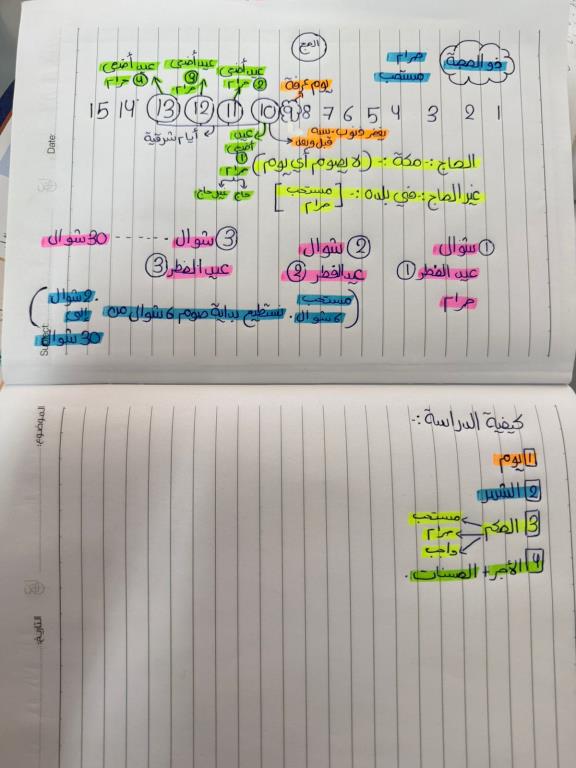 الحج
ذو الحجة
حرام
مستحب
عيد أضحى
④ حرام
عيد أضحى
③ حرام
عيد أضحى
② حرام
يوم عرفة
1 2 3 4 5 6 7 8 9 10 11 12 13 14 15
أيام شرقية
عيد أضحى
① حرام
حاج غير حاج
يغفر ذنوب سنة
قبل وبعد
الحاج :- مكة :- (لا يصوم أي يوم)
غير الحاج :- في بلده :- [مستحب
حرام]
① شوال
عيد الفطر ①
حرام
② شوال
عيد الفطر ②
③ شوال ------- 30 شوال
عيد الفطر ③
(مستحب
6 شوال . تستطيع بداية صوم 6 شوال من
2 شوال
إلى
30 شوال)
Date:
Subject:
كيفية الدراسة :-
1 يوم
2 الشهر
3 الحكم
مستحب
حرام
واجب
4 الأجر + الحسنات .
الموضوع:
التاريخ: